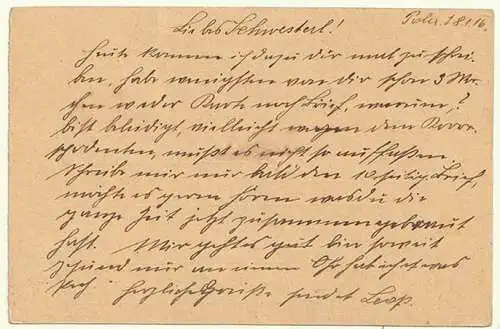 Liebes Schwesterl!
Pola 18.1.16.
Heute komme ich dazu dir mal zu schrei-
ben, habe wenigsten von dir schon 3 Wo-
chen weder Karte noch Brief, warum?
bist beleidigt, vielleicht wegen dem Korre-
spodenten, mußt es nicht so auffassen
schreibe mir nur bald den 10 seitig Brief,
möchte es gern hören was du die
ganze Zeit jetzt zusammengebraut
hast. Mir geht es gut bin soweit
gesund nur an einem Ohr hat ich etwas
Pech. Herzliche Grüße sendet Leop.